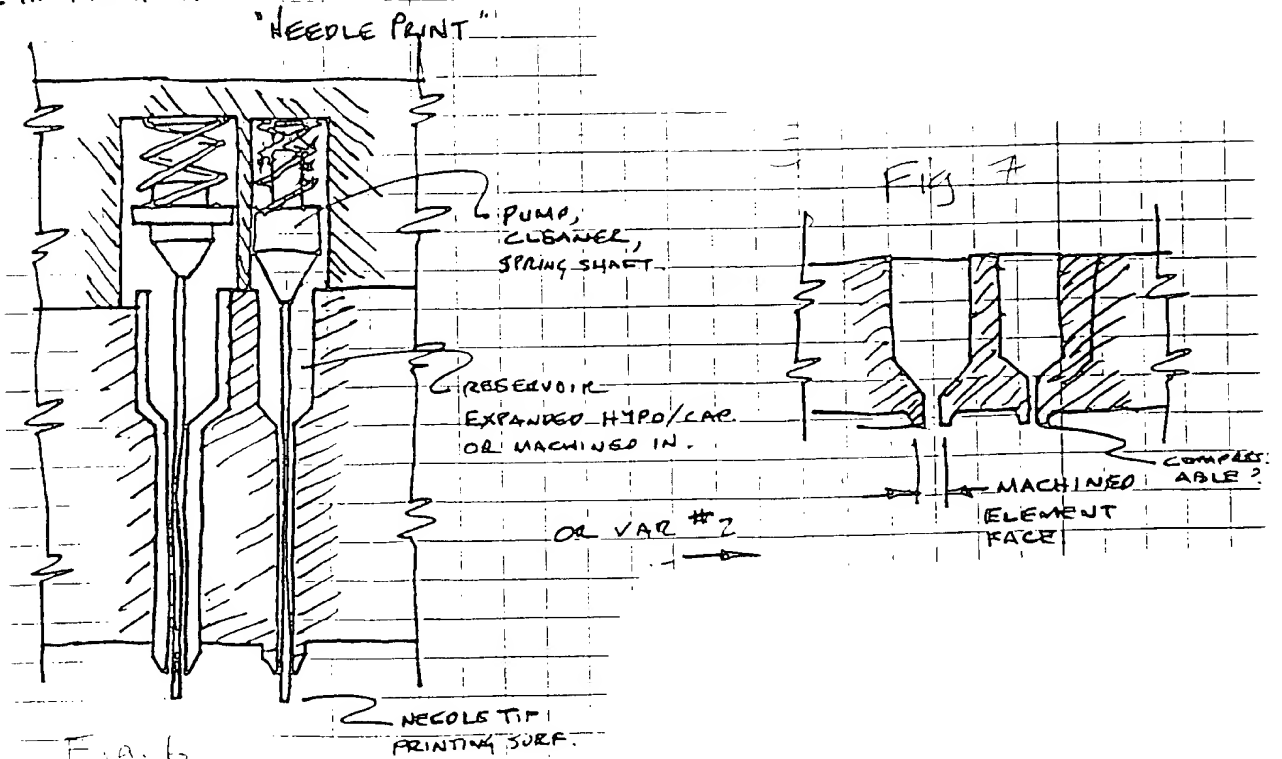 "NEEDLE PRINT"
PUMP,
CLEANER,
SPRING SHAFT
RESERVOIR
EXPANDED HYPO/CAP.
OR MACHINED IN.
OR VAR #2
NEEDLE TIP
PRINTING SURF.
Fig. 6
Fig 7
COMPRESS-
ABLE?
MACHINED
ELEMENT
FACE